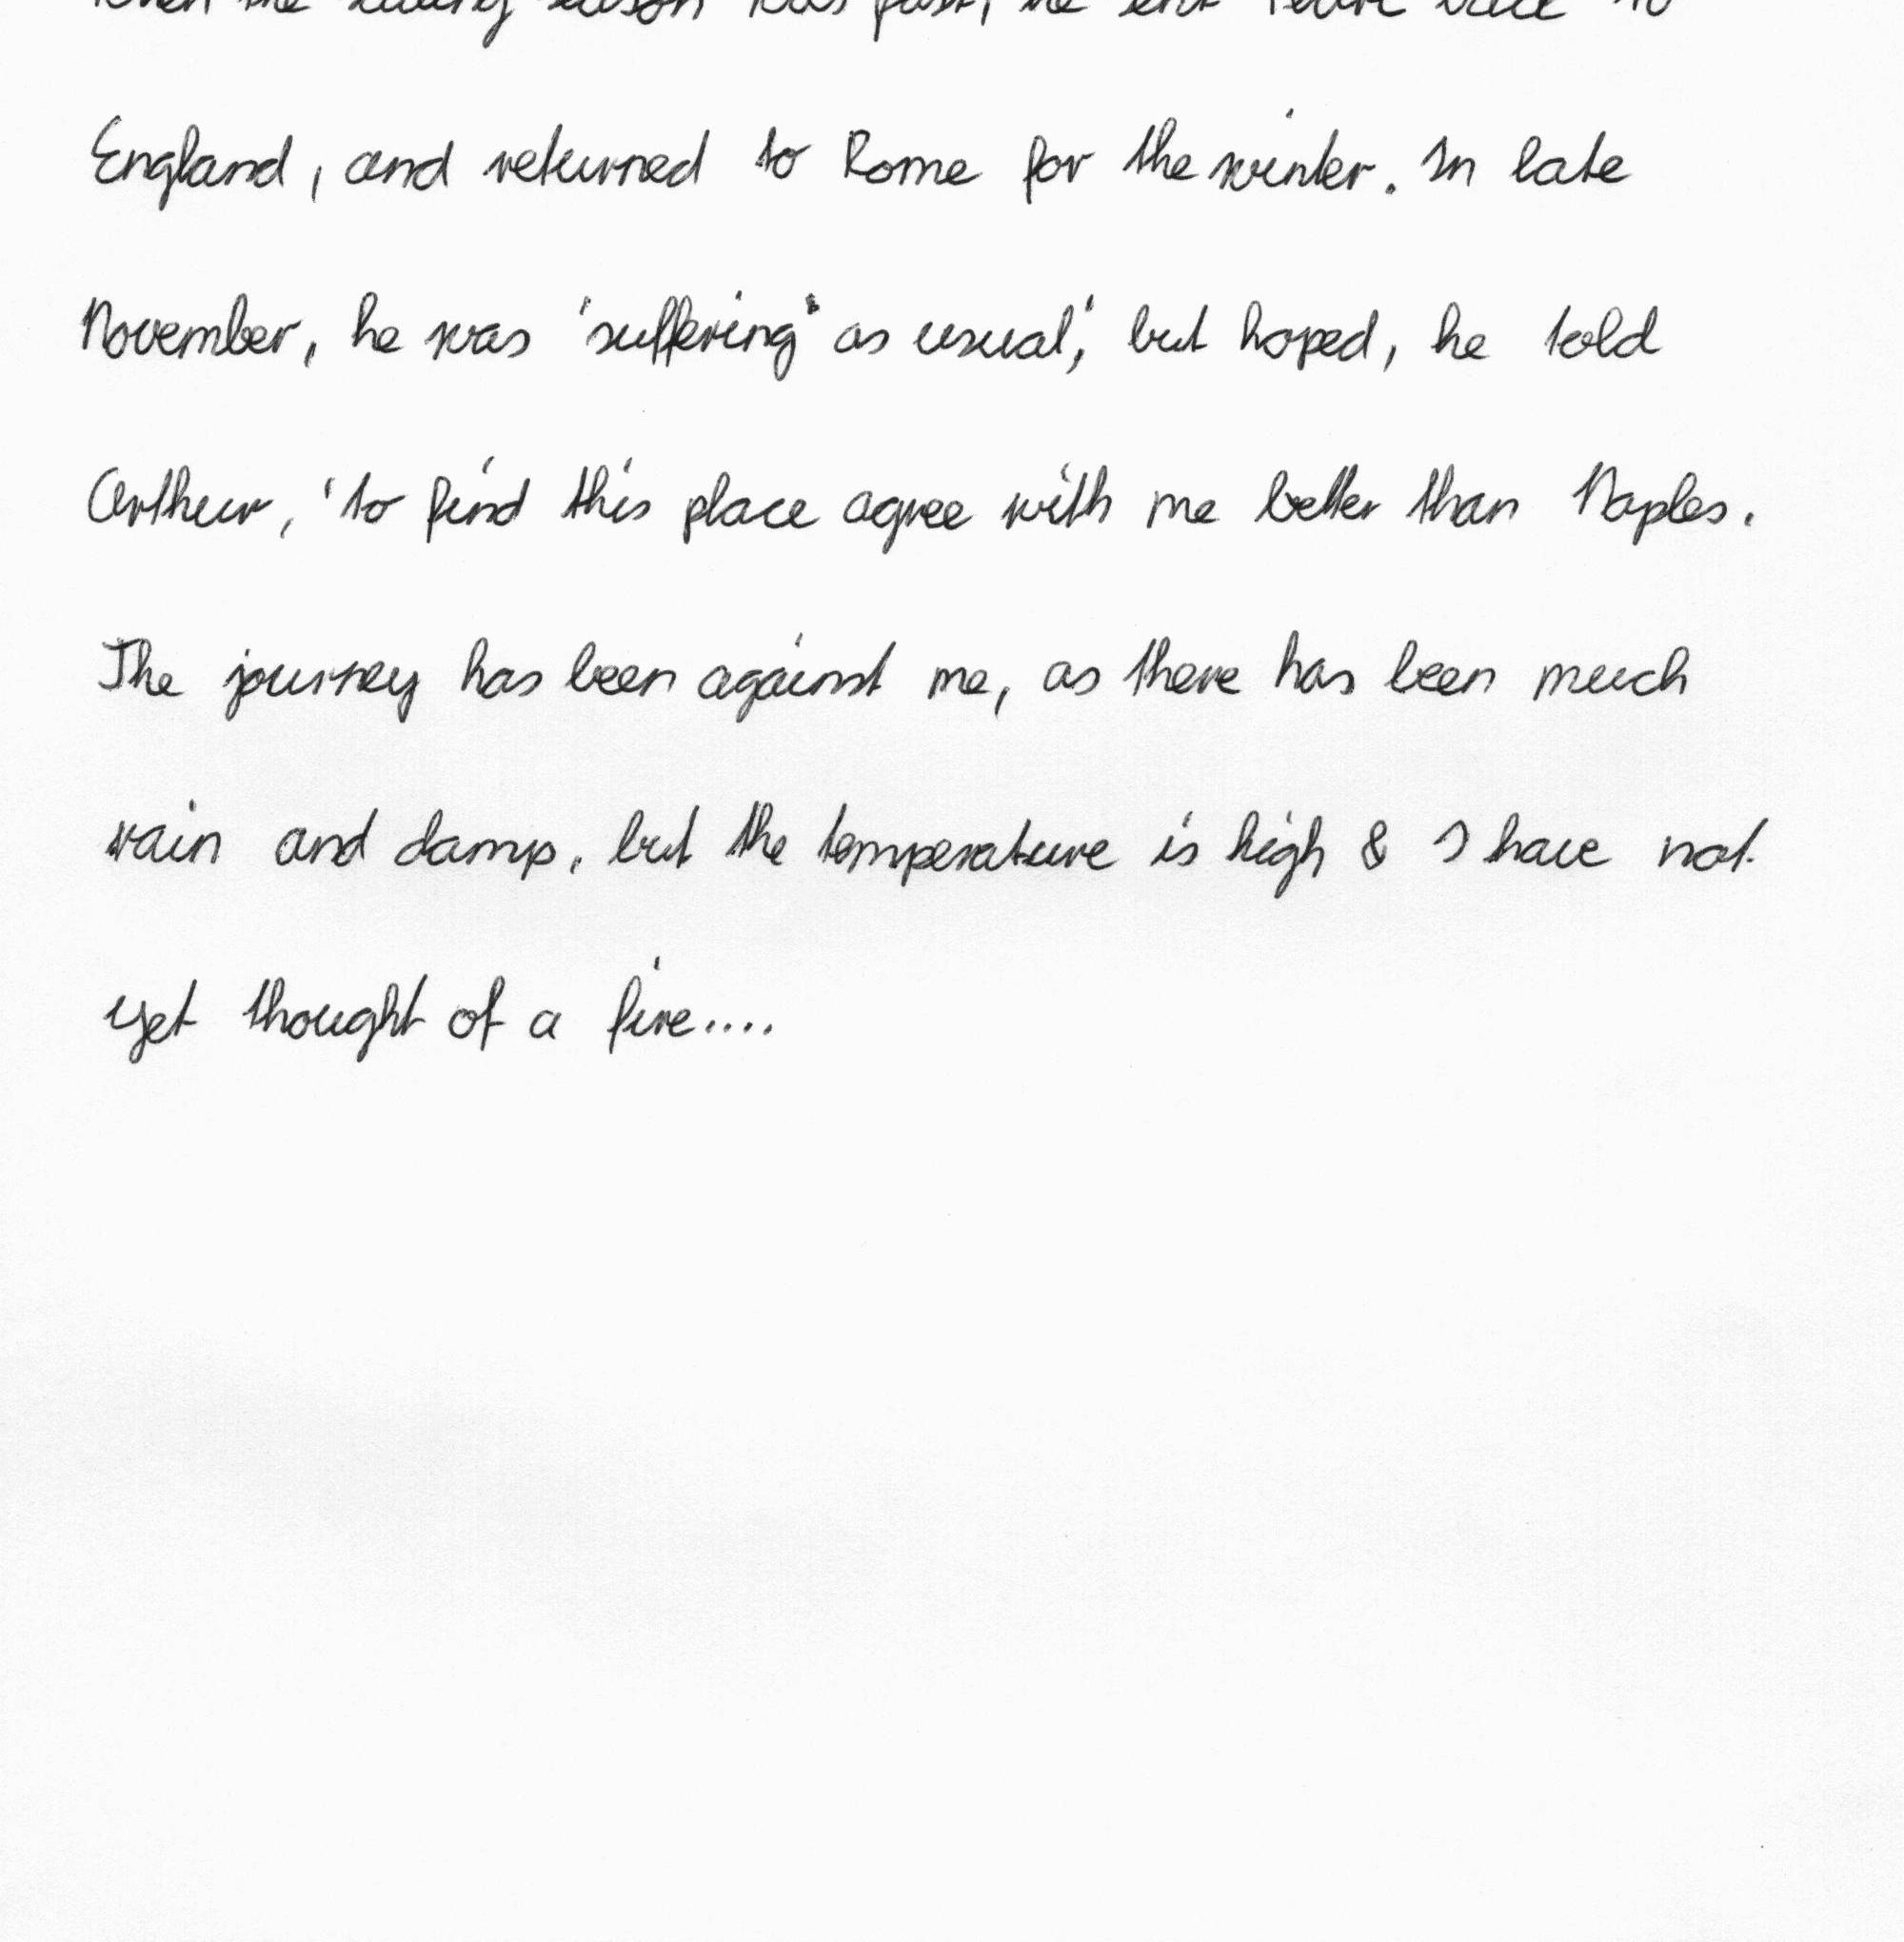 when the sailing season was past, he sent back to
England, and returned to Rome for the winter. In late
November, he was 'suffering' as usual,' but hoped, he told
Arthur, 'to find this place agree with me better than Naples.
The journey has been against me, as there has been much
rain and damp, but the temperature is high & I have not
yet thought of a fire....